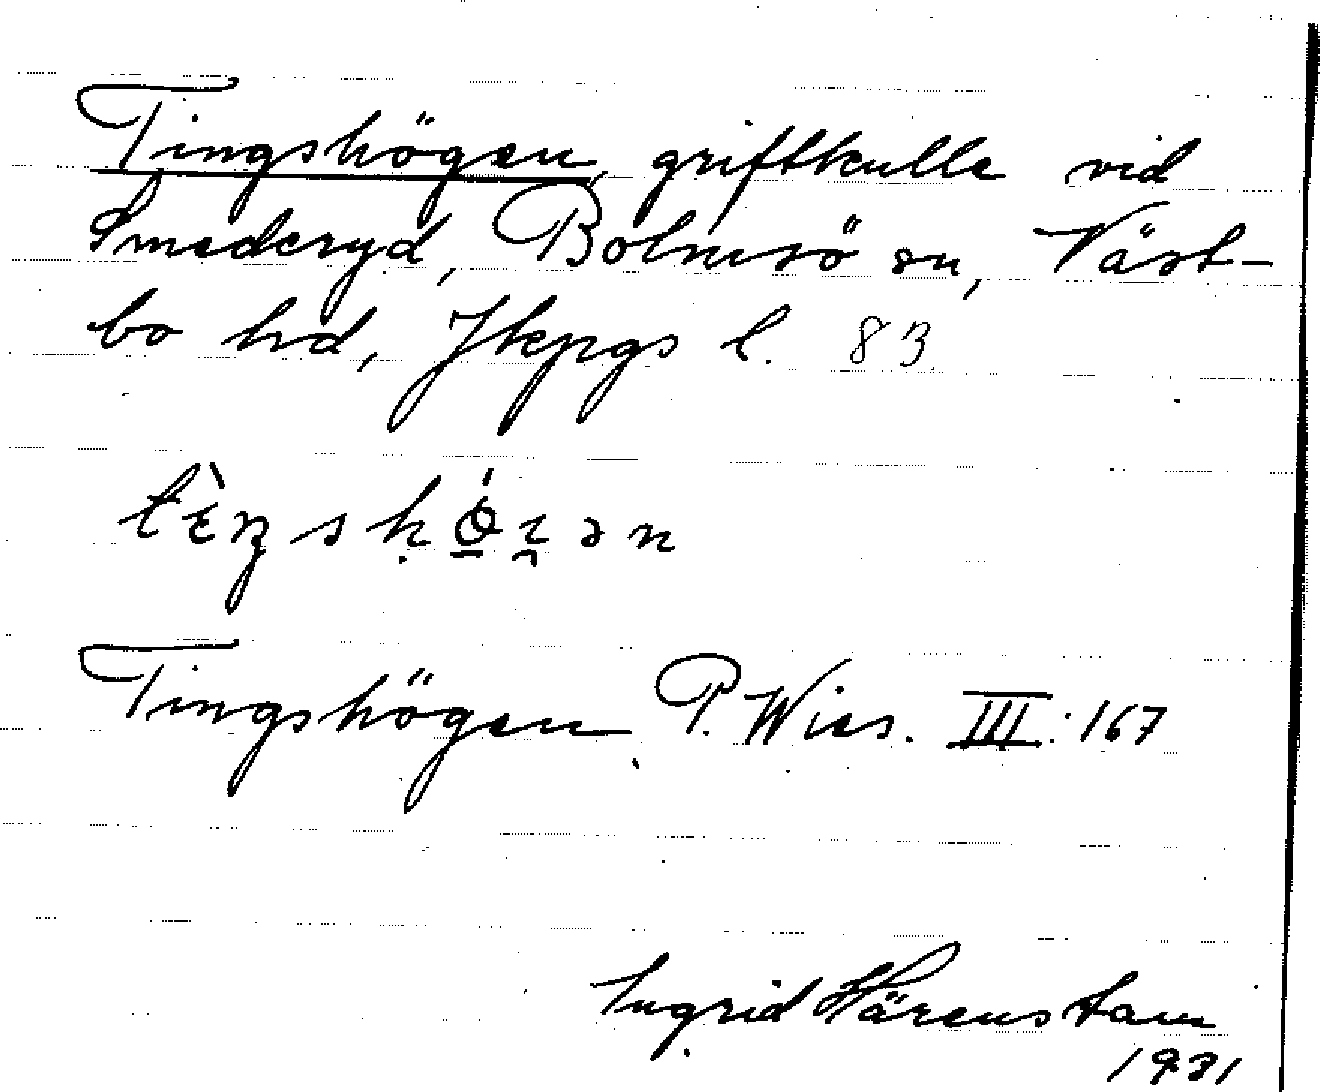 Tingshögen, griftkulle vid
Smederyd, Bolmsö sn, Väst-
bo hd, Jkpgs l. 83
Tingshögen P. Wies. III:167
Ingrid Särenstam
1931